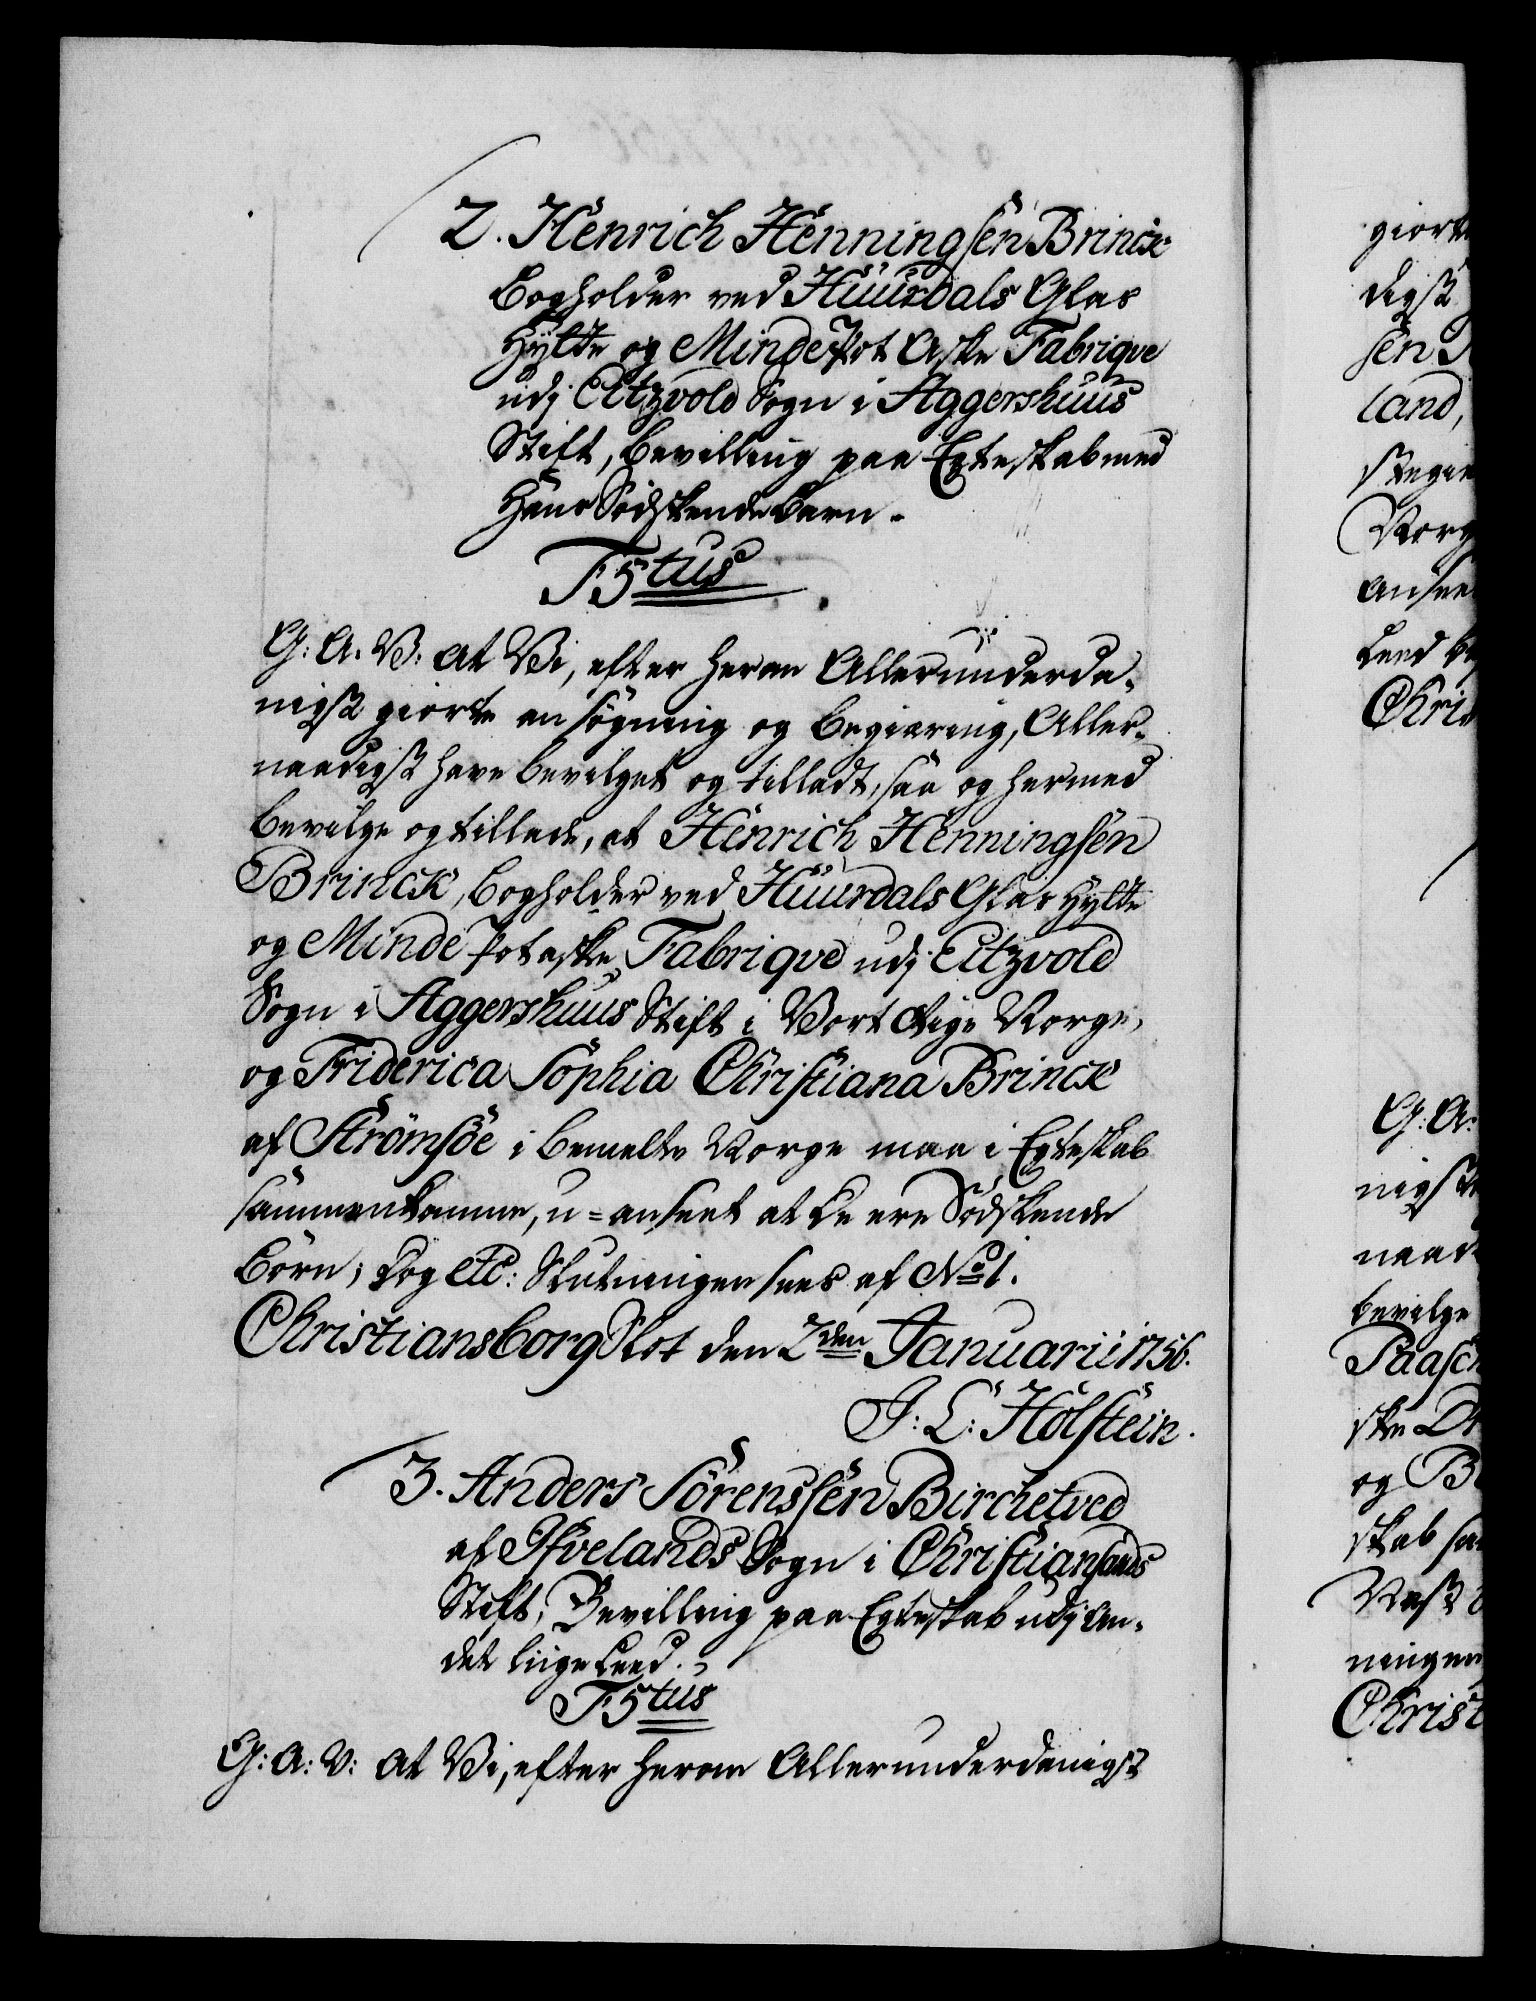 2. Henrich Henningsen Brinck
Bogholder ved Huurdals Glas
Hytte og Minde Pot Aske Fabriqve
udj Eitzvold Sogn i Aggershuus
Stift, Bevilling paa Egteskab med
Hans Södskende Barn.
F5tus
G: A. V: At Vi, efter herom Allerunderda-
nigst giorte ansøgning og begiæring, Aller-
naadigst have bevilget og tilladt, saa og hermed
bevilge og tillade, at Henrich Henningsen
Brinck, Bogholder ved Huurdals Glas Hytte
og Minde Potaske Fabriqve udj Eitzvold
Sogn i Aggershuus Stift i Vort Rige Norge,
og Friderica Sophia Christiana Brinck
af Strömsöe i bemelte Norge maa i Egteskab
sammenkomme, u=anseet at de ere Södskende
Börn; dog etc: Slutningen sees af No 1.
Christiansborg Slot den 2den Januarii 1756.
J: L: Holstein.
3. Anders Sörenssen Birchetved
af Sogn i Christiansands
Stift, Bevilling paa Egteskab udj An-
det liige Leed.
F5tus
G: A: V: At Vi, efter herom Allerunderdanigst
giorte
digst
sen
land,
Norg
ansee
Leed
Chri
G: A:
nigst
naad
bevilge
Paasch
ske
og B
skab sa
ningen
Christ